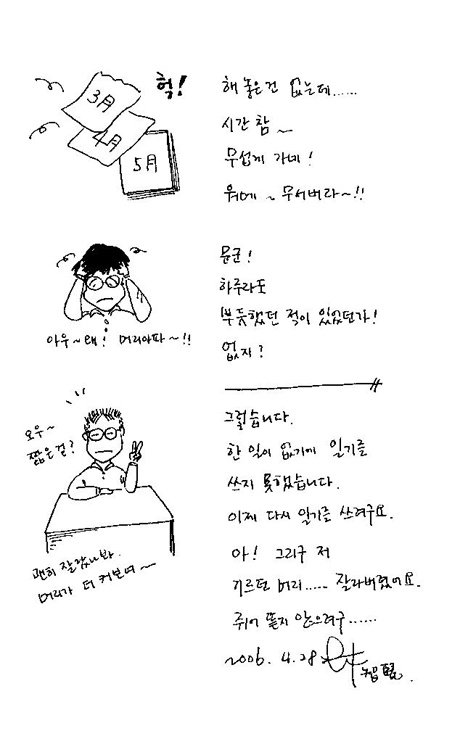 3月
4月
5月
헉!
해 놓은건 없는데......
시간 참~
무섭게 가네!
워메~ 무서버라~!!
아우~ 왜! 머리아파~!!
문군!
하루라도
뿌듯했던 적이 있었던가!
없지?
오우~
짧은걸?
괜히 잘랐나봐.
머리가 더 커보여~
그렇습니다.
한 일이 없기에 일기를
쓰지 못했습니다.
이제 다시 일기를 쓰려구요.
아! 그리구 저
기르던 머리..... 잘라버렸어요.
쥐어 뜯지 않으려구......
2006. 4. 28.
智